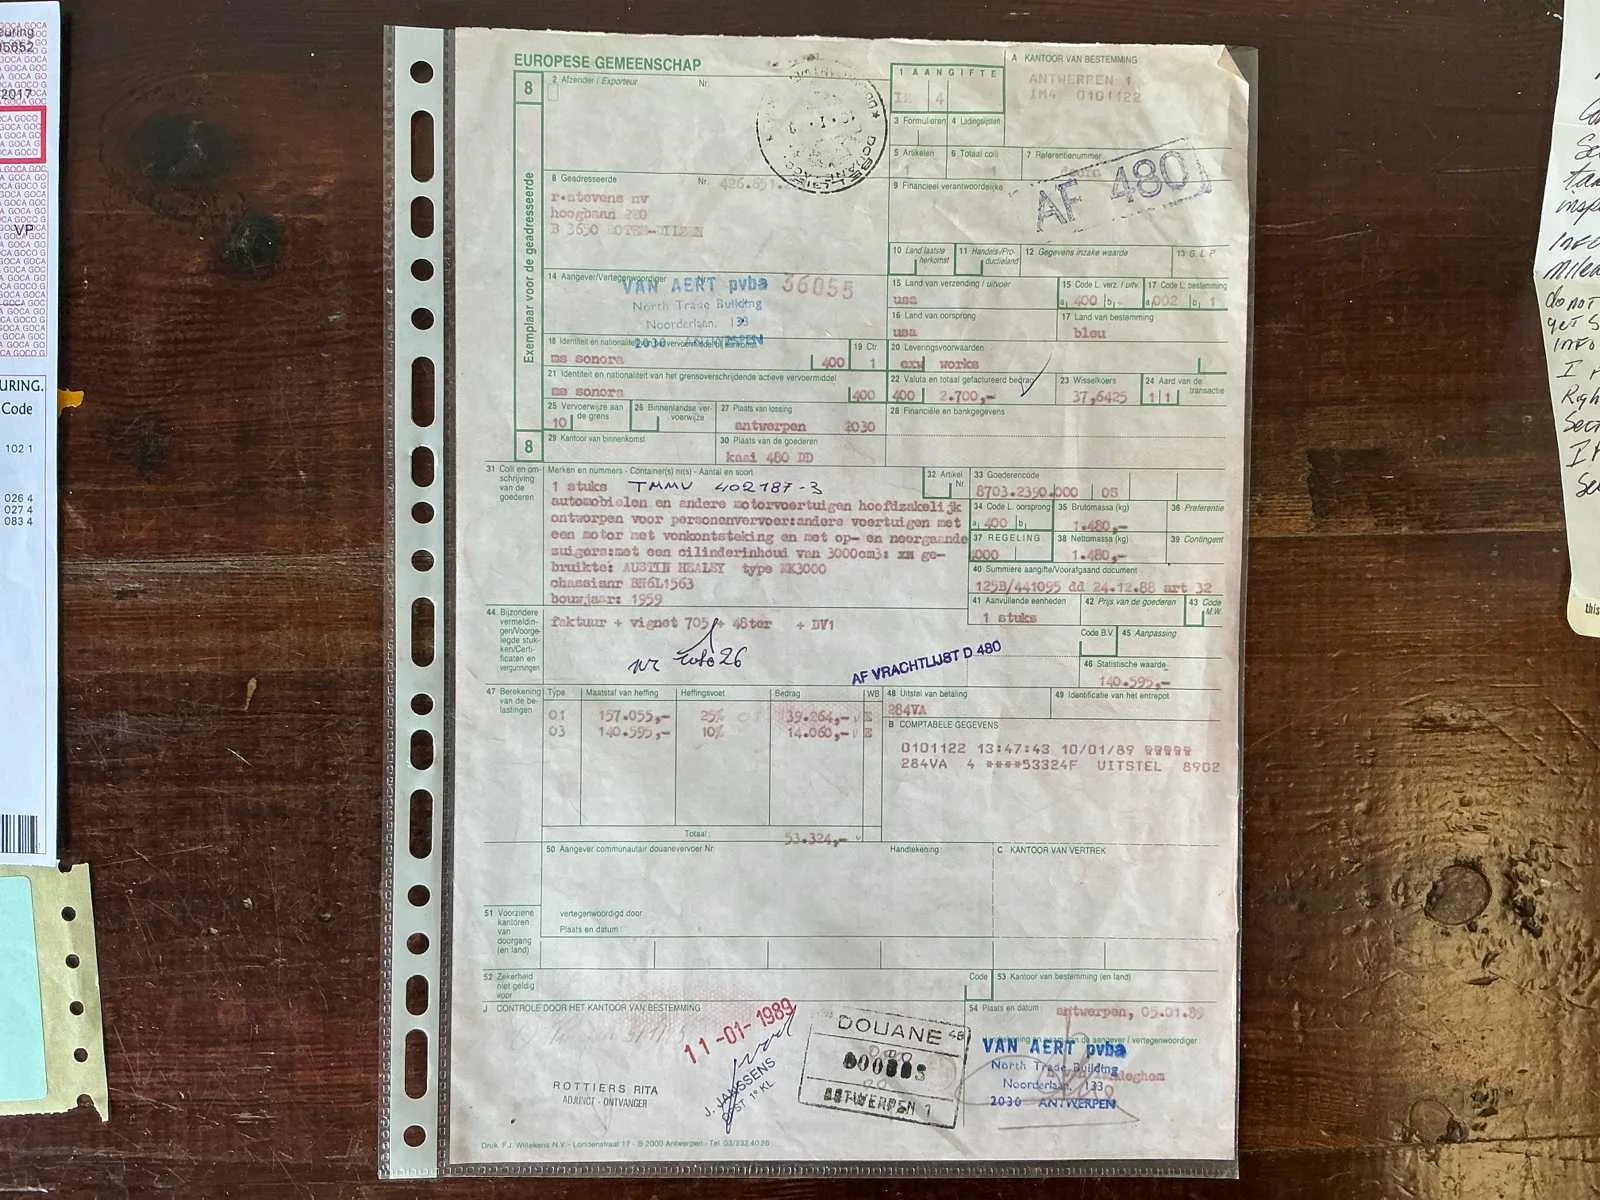 EUROPESE GEMEENSCHAP
8
2 Afzender / Exporteur Nr.
1 AANGIFTE
IM 4
A KANTOOR VAN BESTEMMING
ANTWERPEN 1
IM4 0101122
3 Formulieren 4 Ladingslijsten
5 Artikelen 6 Totaal colli 7 Referentienummer
1 1
AF 480
Exemplaar voor de geadresseerde
8 Geadresseerde Nr.
r.stevens nv
hoogbaan 220
B 3650 ROTEM-DILSEN
9 Financieel verantwoordelijke
10 Land laatste herkomst 11 Handels/Productieland 12 Gegevens inzake waarde 13 G. L. P.
14 Aangever/Vertegenwoordiger Nr.
VAN AERT pvba 36055
North Trade Building
Noorderlaan, 133
2030 ANTWERPEN
15 Land van verzending / uitvoer
usa
15 Code L. verz. / uitv. 17 Code L. bestemming
a 400 b - a 002 b 1
16 Land van oorsprong
usa
17 Land van bestemming
bleu
18 Identiteit en nationaliteit
ms sonora 400
19 Ctr.
1
20 Leveringsvoorwaarden
exw works
21 Identiteit en nationaliteit van het grensoverschrijdende actieve vervoermiddel
ms sonora 400
22 Valuta en totaal gefactureerd bedrag
400 2.700,-
23 Wisselkoers
37,6425
24 Aard van de transactie
1 1
25 Vervoerwijze aan de grens
10
26 Binnenlandse vervoerwijze
27 Plaats van lossing
antwerpen 2030
28 Financiële en bankgegevens
8
29 Kantoor van binnenkomst
30 Plaats van de goederen
kaai 480 DD
31 Colli en omschrijving van de goederen
Merken en nummers - Container(s) nr(s) - Aantal en soort
1 stuks TMMU 402187-3
automobielen en andere motorvoertuigen hoofdzakelijk
ontworpen voor personenvervoer:andere voertuigen met
een motor met vonkontsteking en met op- en neergaande
zuigers:met een cilinderinhoud van 3000cm3: xn ge-
bruikte: AUSTIN HEALEY type MK3000
chassisnr BH6L1563
bouwjaar: 1959
32 Artikel Nr.
33 Goederencode
8703.2390.000 05
34 Code L. oorsprong
a 400 b
35 Brutomassa (kg)
1.480,-
36 Preferentie
37 REGELING
000
38 Nettomassa (kg)
1.480,-
39 Contingent
40 Summiere aangifte/Voorafgaand document
125B/441095 dd 24.12.88 art 32
41 Aanvullende eenheden
1 stuks
42 Prijs van de goederen
43 Code M.W.
44 Bijzondere vermeldingen/Voorgelegde stukken/Certificaten en vergunningen
faktuur + vignet 705 + 48ter + DV1
AF VRACHTLIJST D 480
Code B.V.
45 Aanpassing
46 Statistische waarde
140.595,-
47 Berekening van de belastingen
Type Maatstaf van heffing Heffingsvoet Bedrag WB
01 157.055,- 25% 39.264,- E
03 140.595,- 10% 14.060,- E
Totaal: 53.324,-
48 Uitstel van betaling
284VA
49 Identificatie van het entrepot
B COMPTABELE GEGEVENS
0101122 13:47:43 10/01/89
284VA 4 ****53324F UITSTEL 8902
50 Aangever communautair douanevervoer Nr. Handtekening:
C KANTOOR VAN VERTREK
vertegenwoordigd door
Plaats en datum:
51 Voorziene kantoren van doorgang (en land)
52 Zekerheid niet geldig voor
Code
53 Kantoor van bestemming (en land)
J CONTROLE DOOR HET KANTOOR VAN BESTEMMING
11-01-1989
ROTTIERS RITA
ADJUNCT - ONTVANGER
J. JANSSENS
DOUANE
ANTWERPEN 1
54 Plaats en datum:
antwerpen, 05.01.89
VAN AERT pvba
North Trade Building
Noorderlaan, 133
2030 ANTWERPEN
Druk. F.J. Willekens N.V. - Londenstraat 17 - B 2000 Antwerpen - Tel. 03/232.40.26
euring
2017
VP
URING.
Code
102 1
026 4
027 4
083 4